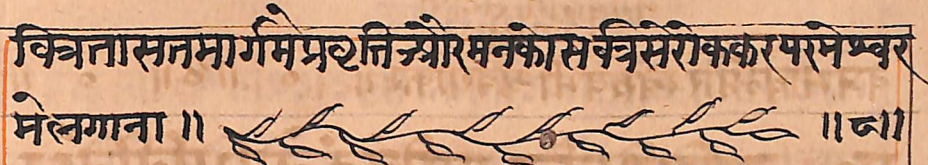 वित्रतासतमार्गमेप्रवृत्तिऔरमनकोसर्वत्रसेरोककरपरमेश्वर
मेलगाना॥ ॥८॥